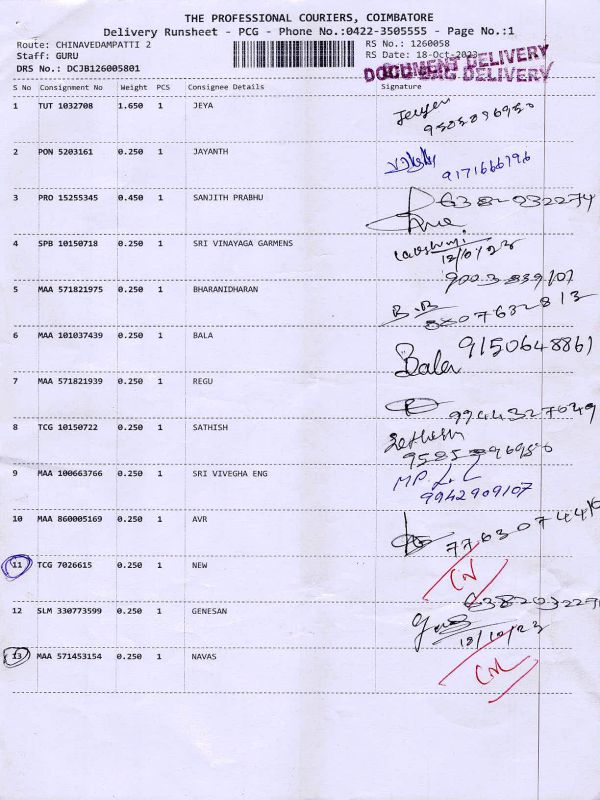 THE PROFESSIONAL COURIERS, COIMBATORE
Delivery Runsheet - PCG - Phone No.:0422-3505555 - Page No.:1
Route: CHINAVEDAMPATTI 2 RS No.: 1260058
Staff: GURU RS Date: 18-Oct-2023
DRS No.: DCJB126005801
DOCUMENT DELIVERY
DELIVERY
S No Consignment No Weight PCS Consignee Details Signature
1 TUT 1032708 1.650 1 JEYA
2 PON 5203161 0.250 1 JAYANTH
9171666796
3 PRO 15255345 0.450 1 SANJITH PRABHU 6382032274
4 SPB 10150718 0.250 1 SRI VINAYAGA GARMENS Lakshmi
18/10/23
9003839107
5 MAA 571821975 0.250 1 BHARANIDHARAN B.B
8807632813
6 MAA 101037439 0.250 1 BALA Bala 9150648861
7 MAA 571821939 0.250 1 REGU
9944327049
8 TCG 10150722 0.250 1 SATHISH Sathish
9 MAA 100663766 0.250 1 SRI VIVEGHA ENG
9942909107
10 MAA 860005169 0.250 1 AVR
11 TCG 7026615 0.250 1 NEW
12 SLM 330773599 0.250 1 GENESAN
18/10/23
13 MAA 571453154 0.250 1 NAVAS